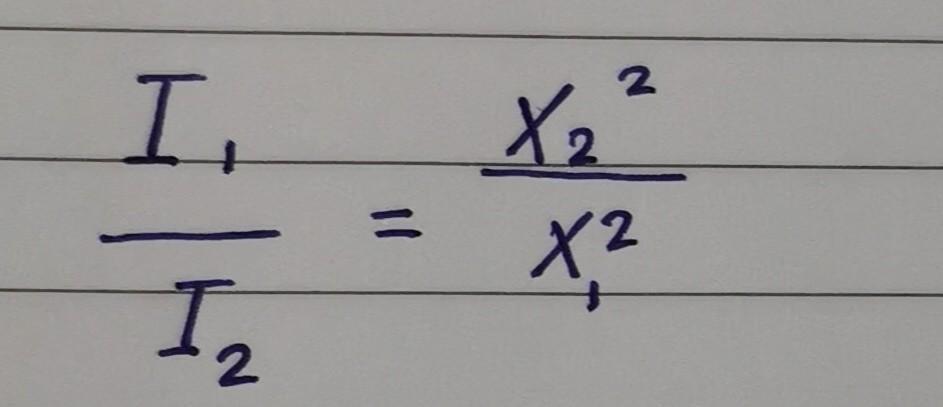 I₁/I₂ = X₂²/X₁²